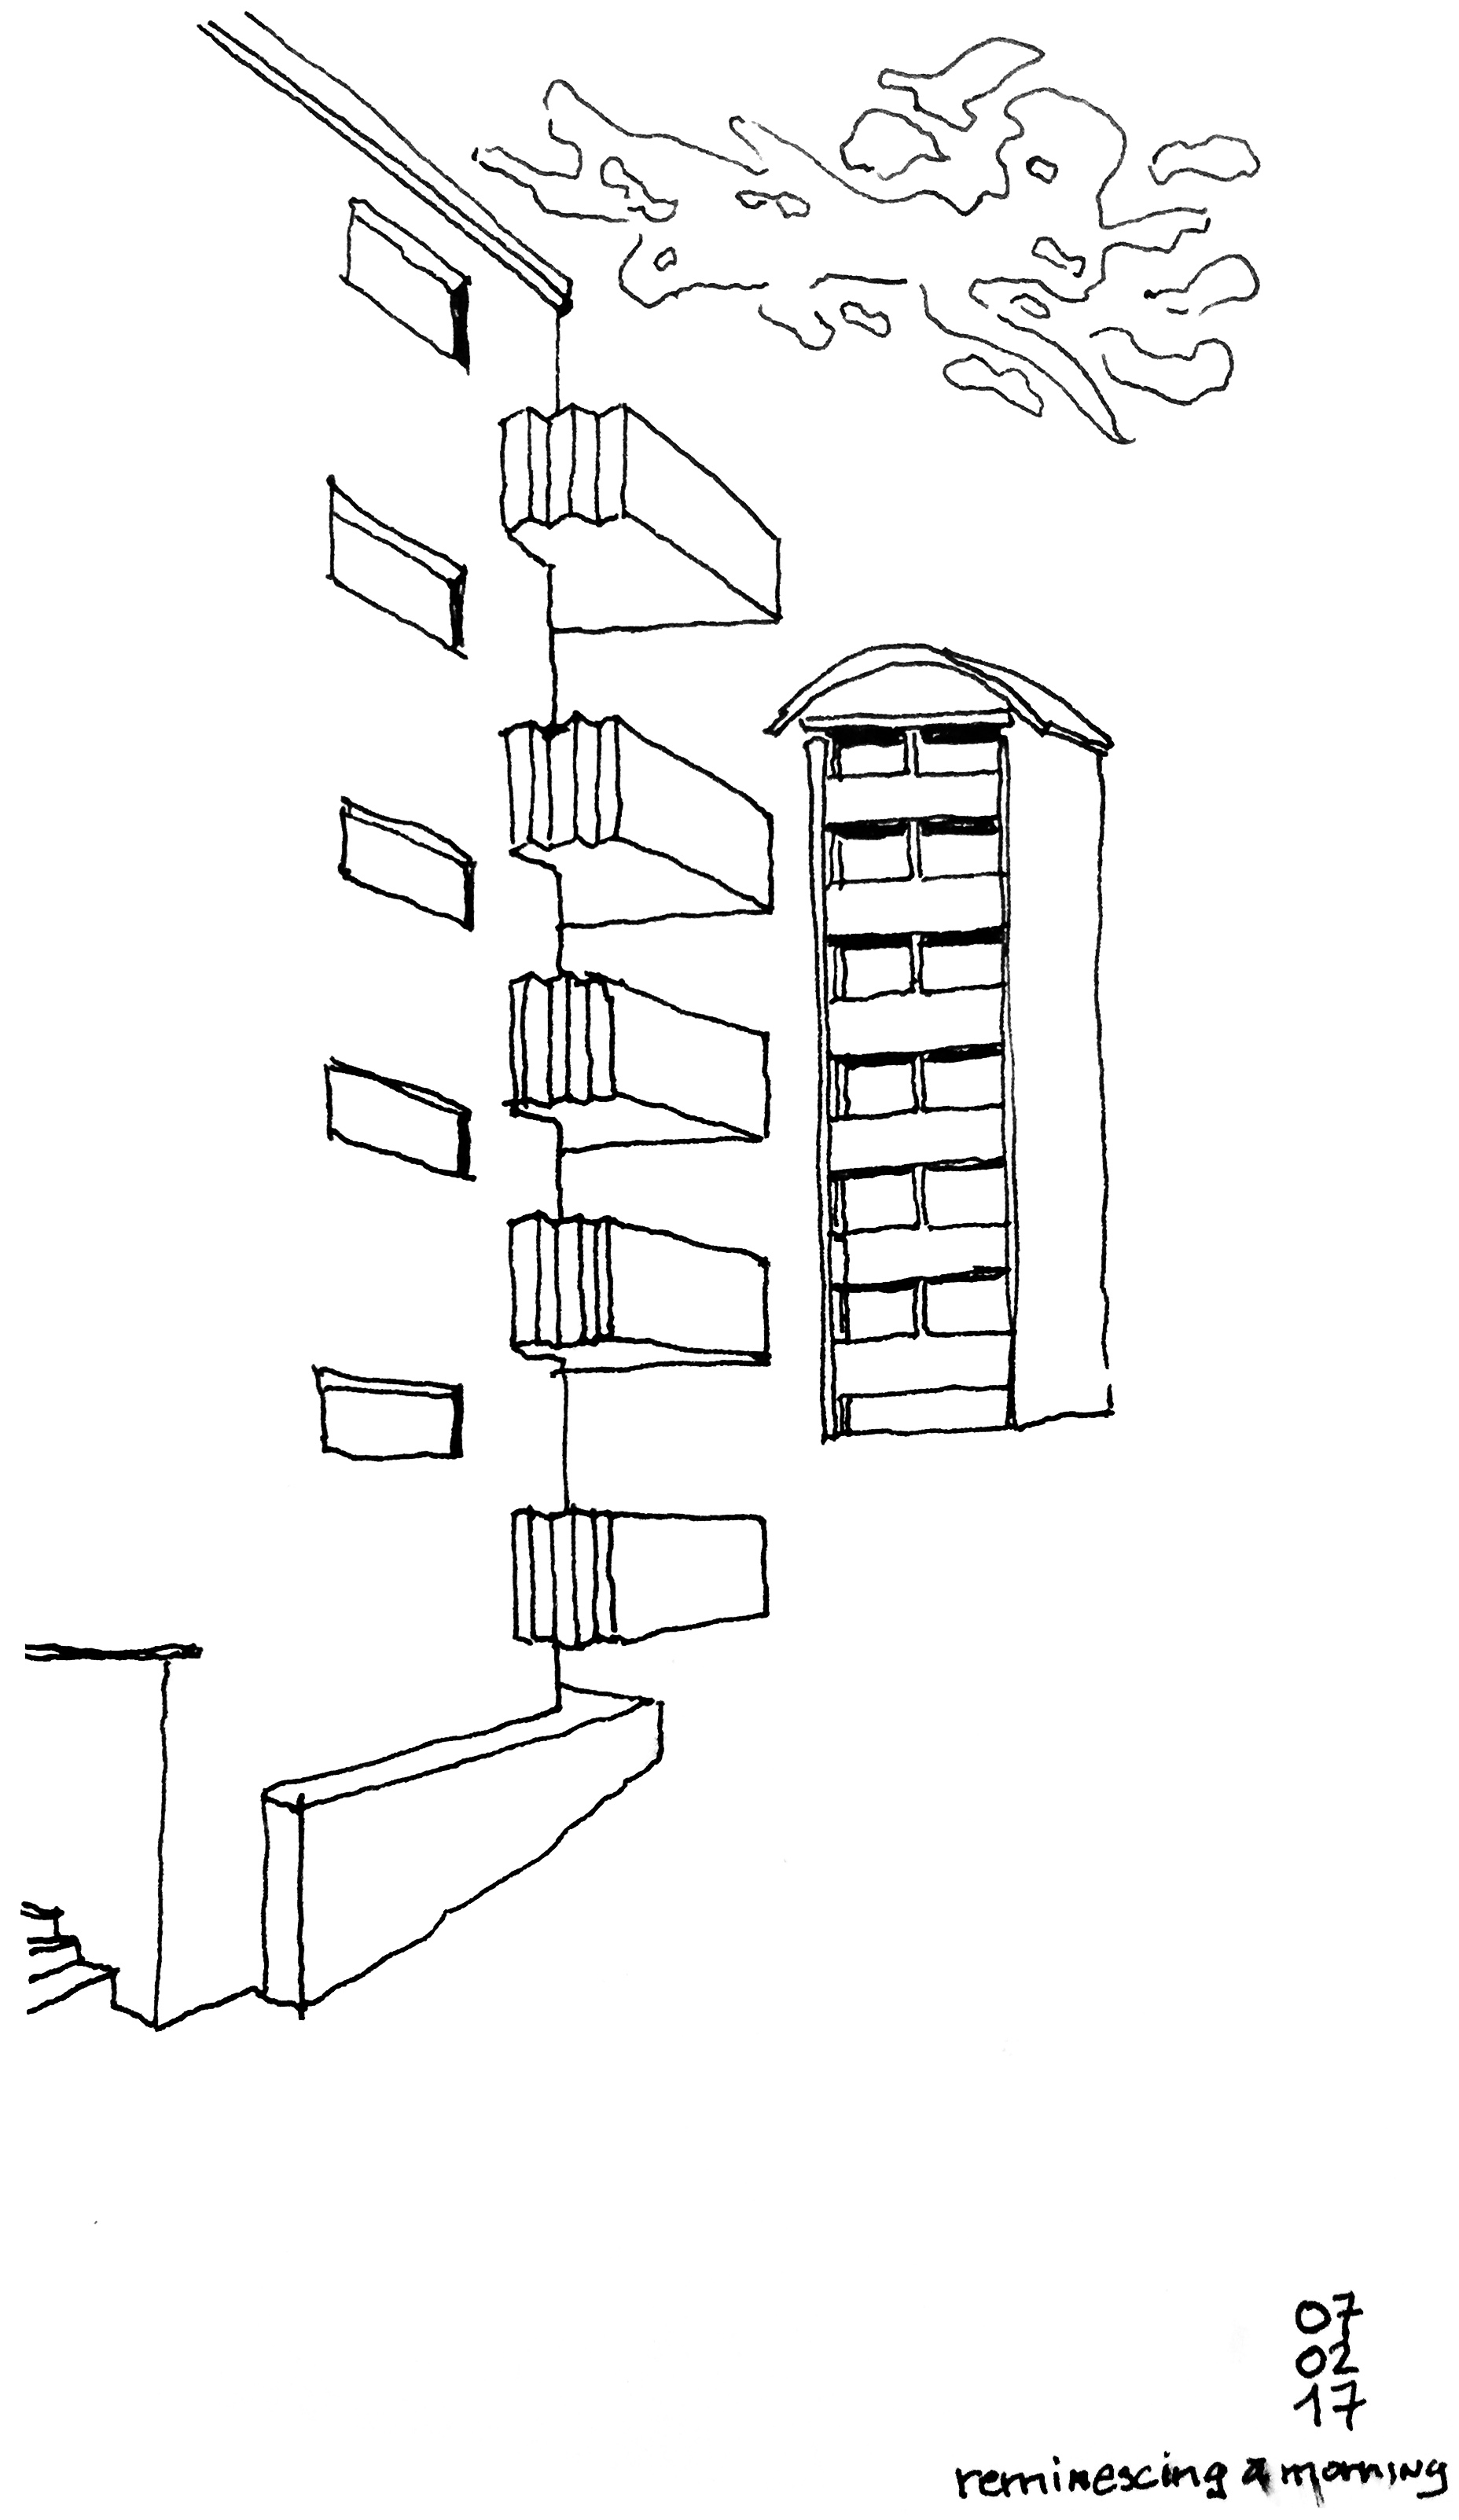 07
02
17
reminescing a morning